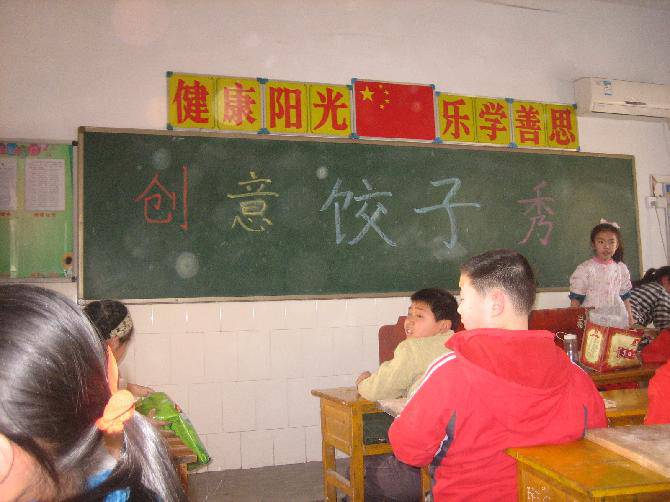 健康阳光 乐学善思
创意饺子秀